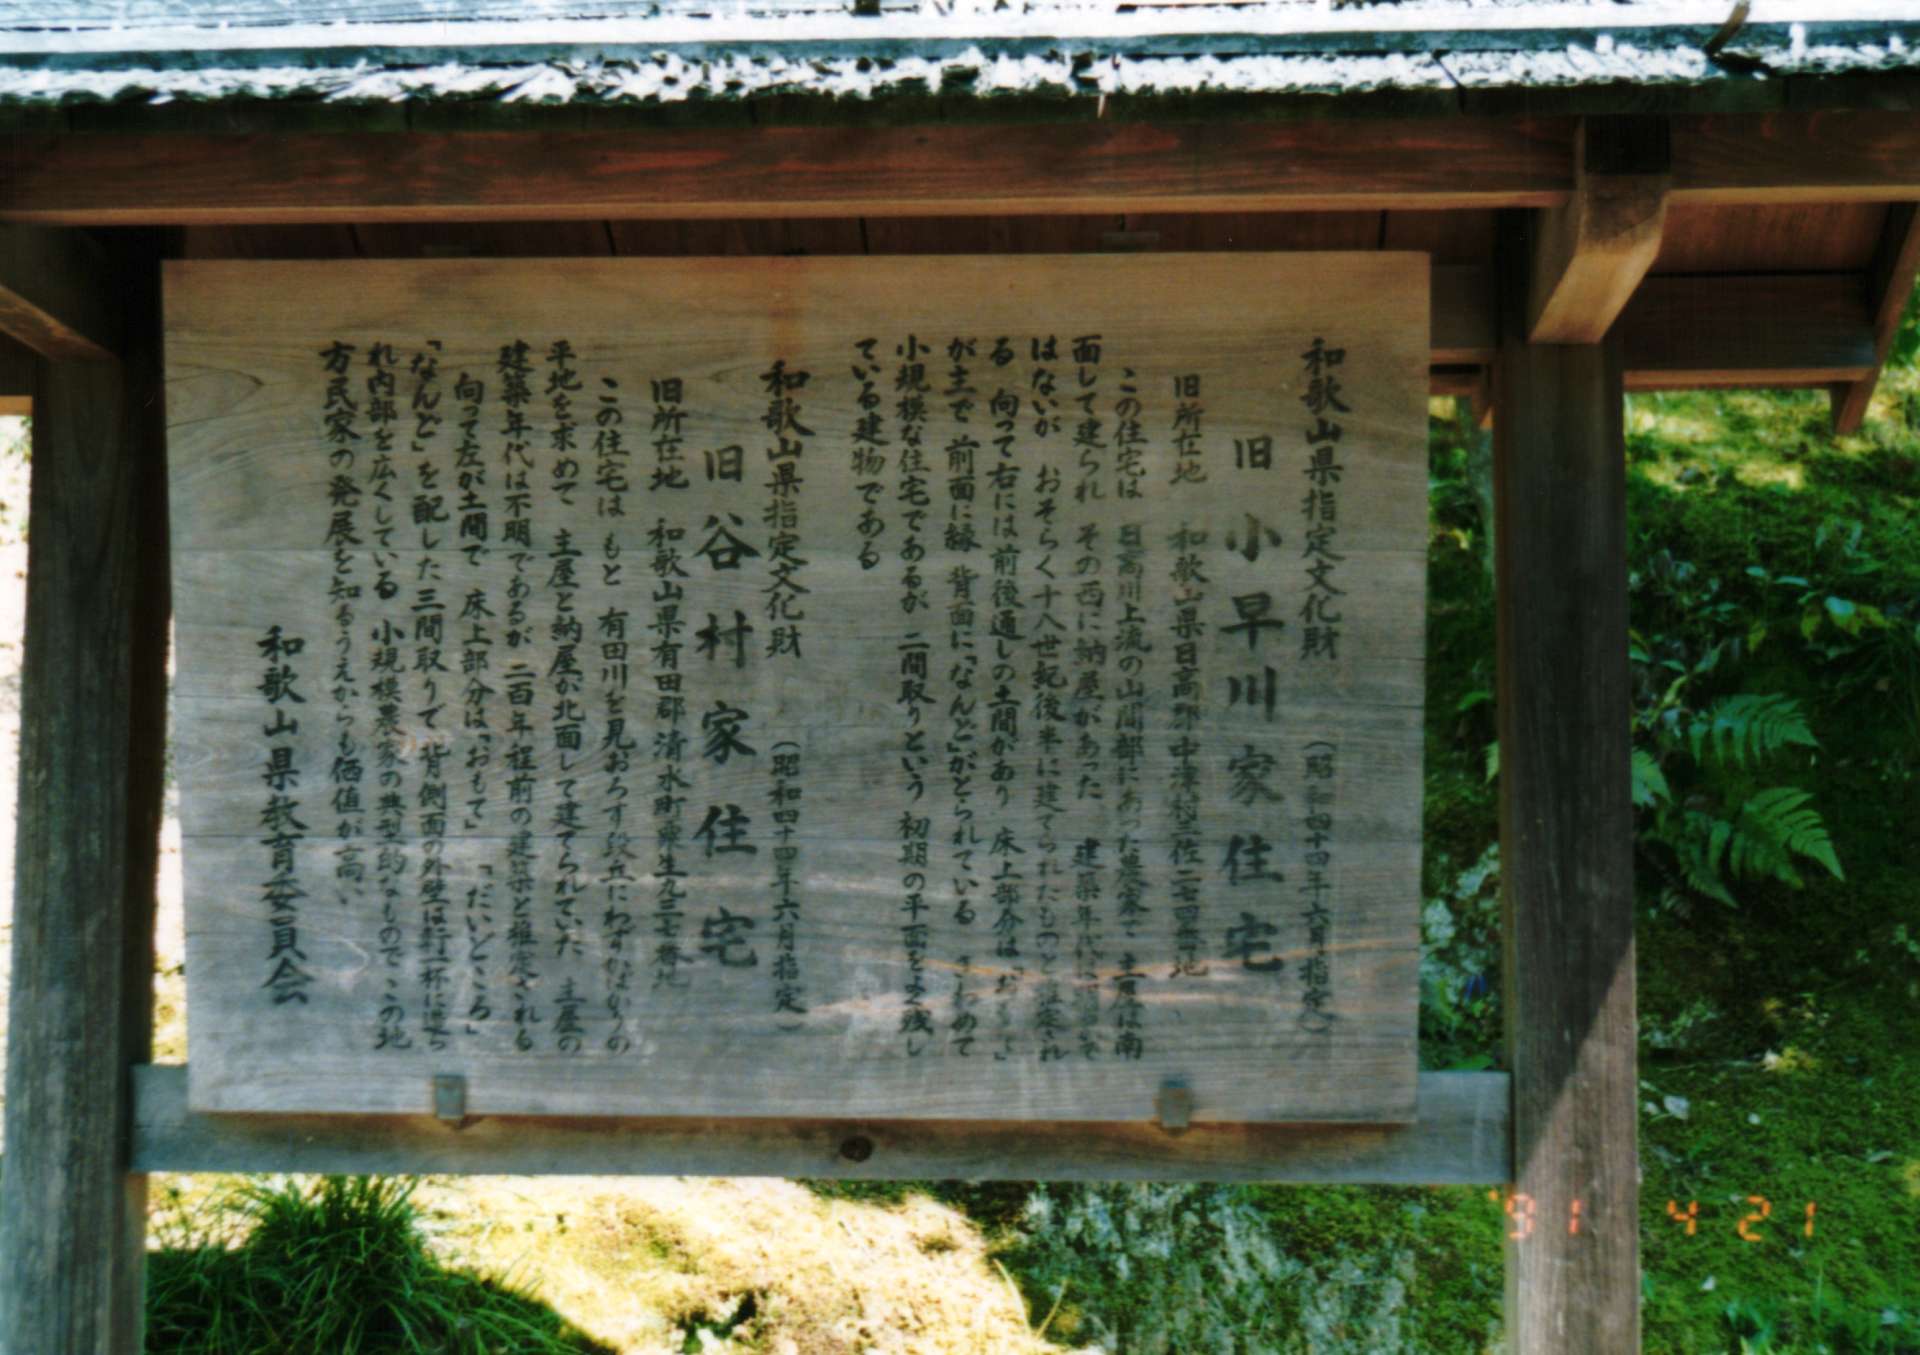 和歌山県指定文化財
(昭和四十四年六月指定)
旧小早川家住宅
旧所在地 和歌山県日高郡中津村三佐二七四番地
この住宅は 日高川上流の山間部にあった農家で 主屋は南
面して建られ その西に納屋があった 建築年代は明確で
はないが おそらく十八世紀後半に建てられたものと推定され
る 向って右には前後通しの土間があり 床上部分は「おもて」
が主で 前面に縁 背面に「なんど」がとられている きわめて
小規模な住宅であるが 二間取りという 初期の平面をよく残し
ている建物である
和歌山県指定文化財
(昭和四十四年六月指定)
旧谷村家住宅
旧所在地 和歌山県有田郡清水町粟生九三七番地
この住宅は もと 有田川を見おろす段丘にわずかばかりの
平地を求めて 主屋と納屋が北面して建てられていた 主屋の
建築年代は不明であるが 二百年程前の建築と推定される
向って左が土間で 床上部分は「おもて」 「だいどころ」
「なんど」を配した三間取りで 背側面の外壁は軒一杯に造ら
れ内部を広くしている 小規模農家の典型的なもので この地
方民家の発展を知るうえからも価値が高い
和歌山県教育委員会
'91 4 21